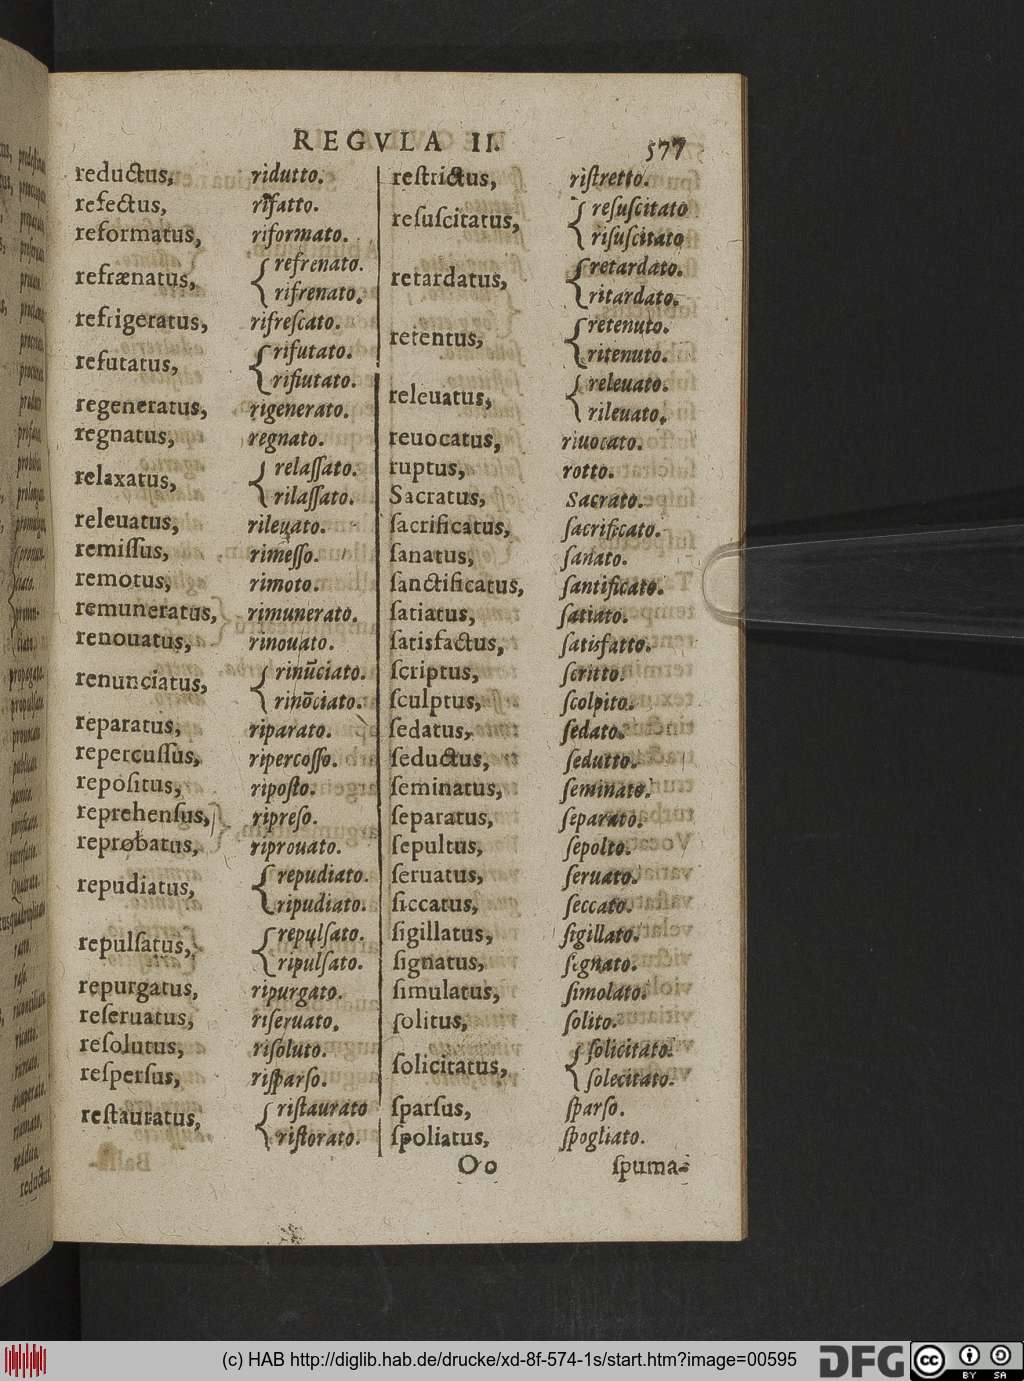 REGVLA II. 577
reductus, ridutto.
refectus, rifatto.
reformatus, riformato.
refrænatus, { refrenato.
rifrenato.
refrigeratus, rifreſcato.
refutatus, { rifutato.
rifiutato.
regeneratus, rigenerato.
regnatus, regnato.
relaxatus, { relaſſato.
rilaſſato.
releuatus, rileuato.
remiſſus, rimeſſo.
remotus, rimoto.
remuneratus, rimunerato.
renouatus, rinouato.
renunciatus, { rinūciato.
rinōciato.
reparatus, riparato.
repercuſſus, ripercoſſo.
repoſitus, ripoſto.
reprehenſus, ripreſo.
reprobatus, riprouato.
repudiatus, { repudiato.
ripudiato.
repulſatus, { repulſato.
ripulſato.
repurgatus, ripurgato.
reſeruatus, riſeruato.
reſolutus, riſoluto.
reſperſus, riſparſo.
reſtauratus, { riſtaurato
riſtorato.
reſtrictus, riſtretto.
reſuſcitatus, { reſuſcitato
riſuſcitato
retardatus, { retardato.
ritardato.
retentus, { retenuto.
ritenuto.
releuatus, { releuato.
rileuato.
reuocatus, riuocato.
ruptus, rotto.
Sacratus, Sacrato.
ſacrificatus, ſacrificato.
ſanatus, ſanato.
ſanctificatus, ſantificato.
ſatiatus, ſatiato.
ſatisfactus, ſatisfatto.
ſcriptus, ſcritto.
ſculptus, ſcolpito.
ſedatus, ſedato.
ſeductus, ſedutto.
ſeminatus, ſeminato.
ſeparatus, ſeparato.
ſepultus, ſepolto.
ſeruatus, ſeruato.
ſiccatus, ſeccato.
ſigillatus, ſigillato.
ſignatus, ſignato.
ſimulatus, ſimolato.
ſolitus, ſolito.
ſolicitatus, { ſolicitato.
ſolecitato.
ſparſus, ſparſo.
ſpoliatus, ſpogliato.
Oo ſpuma-
(c) HAB http://diglib.hab.de/drucke/xd-8f-574-1s/start.htm?image=00595
DFG
cc BY SA